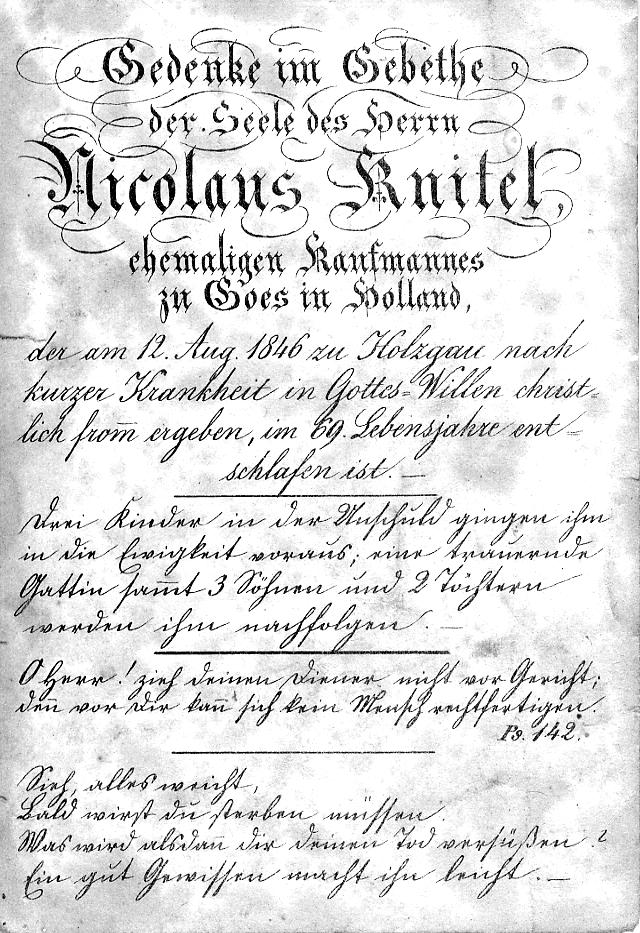 Gedenke im Gebethe
der Seele des Herrn
Nicolaus Knitel,
ehemaligen Kaufmannes
zu Goes in Holland,
der am 12. Aug. 1846 zu Holzgau nach
kurzer Krankheit in Gottes=Willen christ=
lich from̅ ergeben, im 69. Lebensjahre ent=
schlafen ist. —
Drei Kinder in der Unschuld gingen ihm
in die Ewigkeit voraus; eine trauernde
Gattin sam̅t 3 Söhnen und 2 Töchtern
werden ihm nachfolgen. —
O Herr! zieh deinen Diener nicht vor Gericht;
den vor Dir kan̅ sich kein Mensch rechtfertigen.
Ps. 142.
Sieh, alles weicht,
Bald wirst du sterben müssen.
Was wird alsdan̅ dir deinen Tod versüßen?
Ein gut Gewissen macht ihn leicht. —